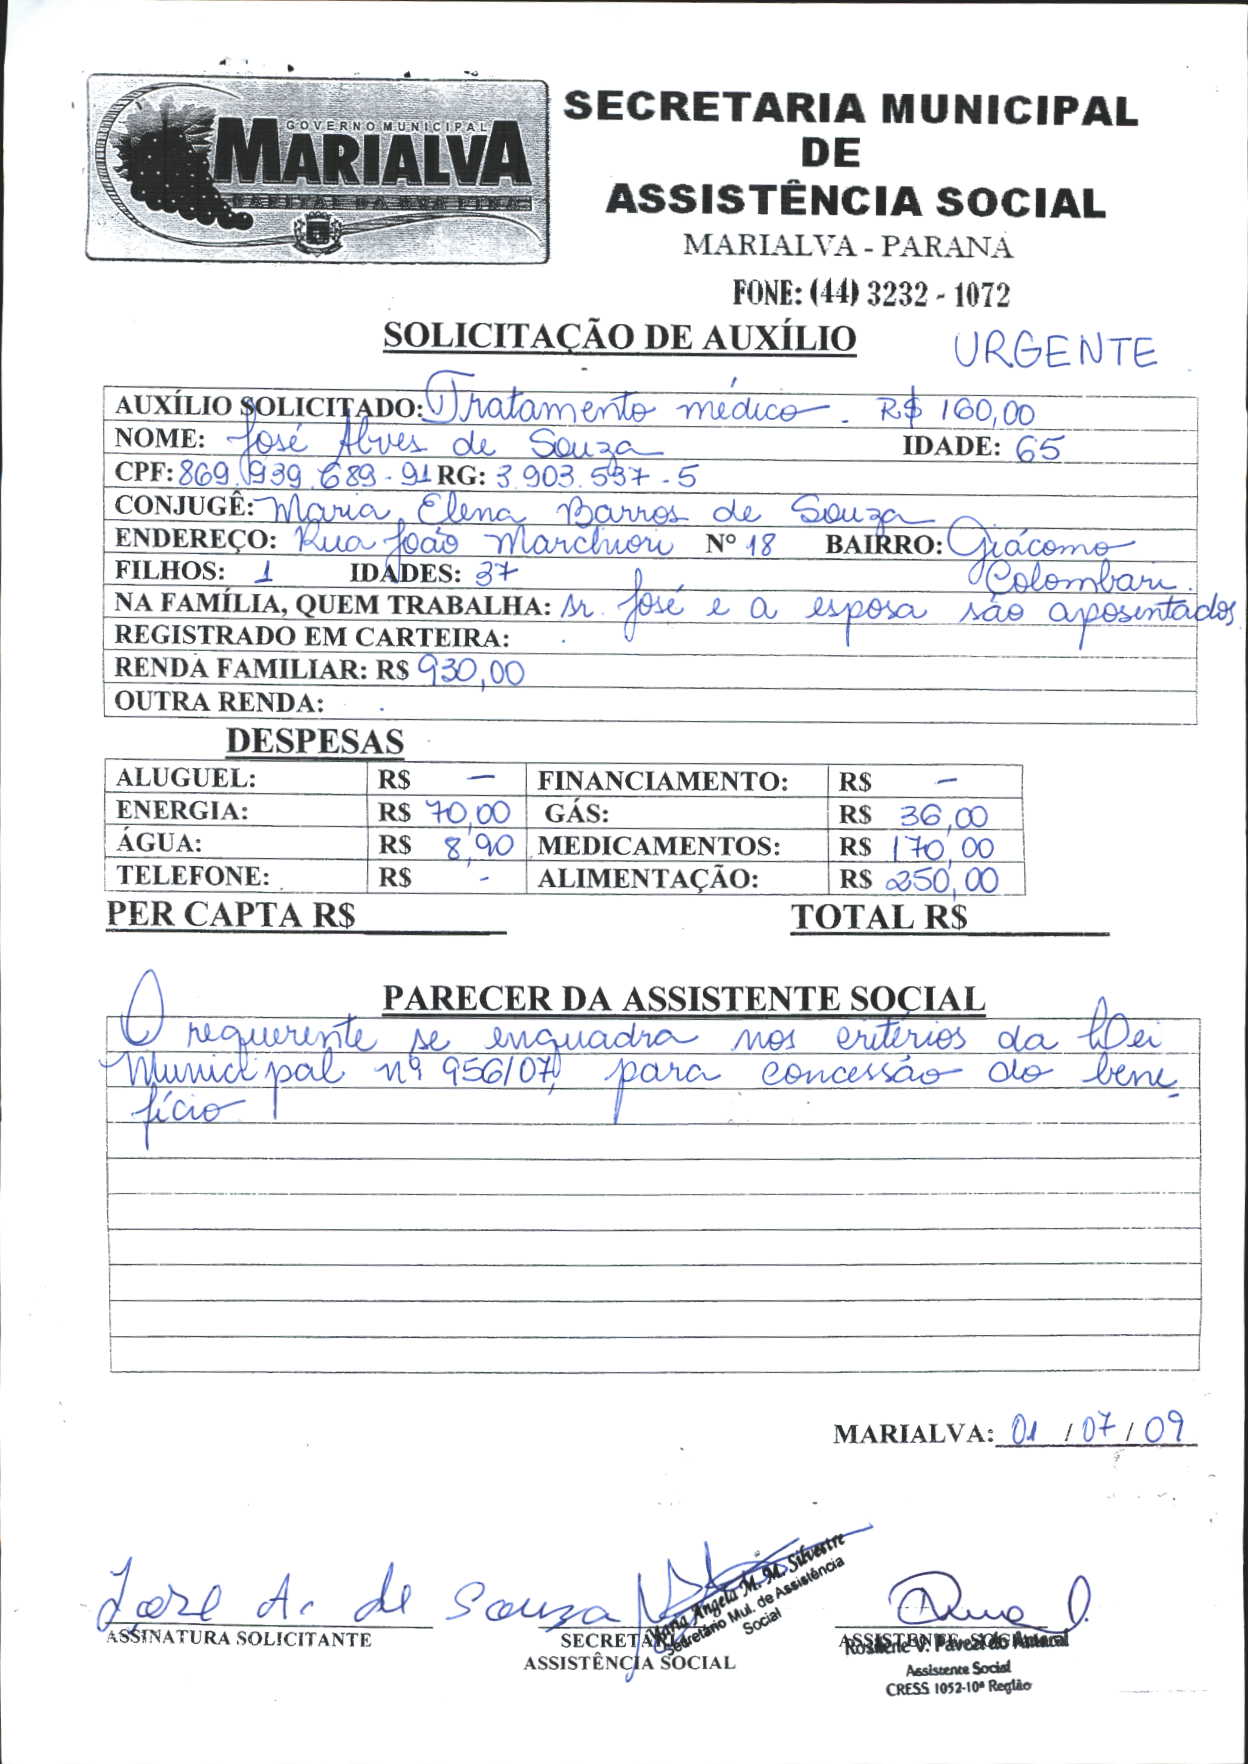 GOVERNO MUNICIPAL
MARIALVA
CAPITAL DA UVA FINA
SECRETARIA MUNICIPAL
DE
ASSISTÊNCIA SOCIAL
MARIALVA - PARANÁ
FONE: (44) 3232 - 1072
SOLICITAÇÃO DE AUXÍLIO URGENTE
AUXÍLIO SOLICITADO: Tratamento médico - R$ 160,00
NOME: José Alves de Souza IDADE: 65
CPF: 869.939.689-91 RG: 3.903.537-5
CONJUGÊ: Maria Elena Barros de Souza
ENDEREÇO: Rua João Marchiori Nº 18 BAIRRO: Giácomo
Colombari.
FILHOS: 1 IDADES: 37
NA FAMÍLIA, QUEM TRABALHA: Sr. José e a esposa são aposentados
REGISTRADO EM CARTEIRA:
RENDA FAMILIAR: R$ 930,00
OUTRA RENDA:
DESPESAS
ALUGUEL: R$ - FINANCIAMENTO: R$ -
ENERGIA: R$ 70,00 GÁS: R$ 36,00
ÁGUA: R$ 8,90 MEDICAMENTOS: R$ 170,00
TELEFONE: R$ - ALIMENTAÇÃO: R$ 250,00
PER CAPTA R$ TOTAL R$
PARECER DA ASSISTENTE SOCIAL
O requerente se enquadra nos critérios da Lei
Municipal nº 956/07, para concessão do bene-
fício
MARIALVA: 01 / 07 / 09
José A. de Souza
ASSINATURA SOLICITANTE
ASSISTÊNCIA SOCIAL
Maria Angela M. M. Silvestre
Secretário Mul. de Assistência
Social
ASSISTENTE SOCIAL
Rosilene V. Pavesi do Amaral
Assistente Social
CRESS 1052-10ª Região